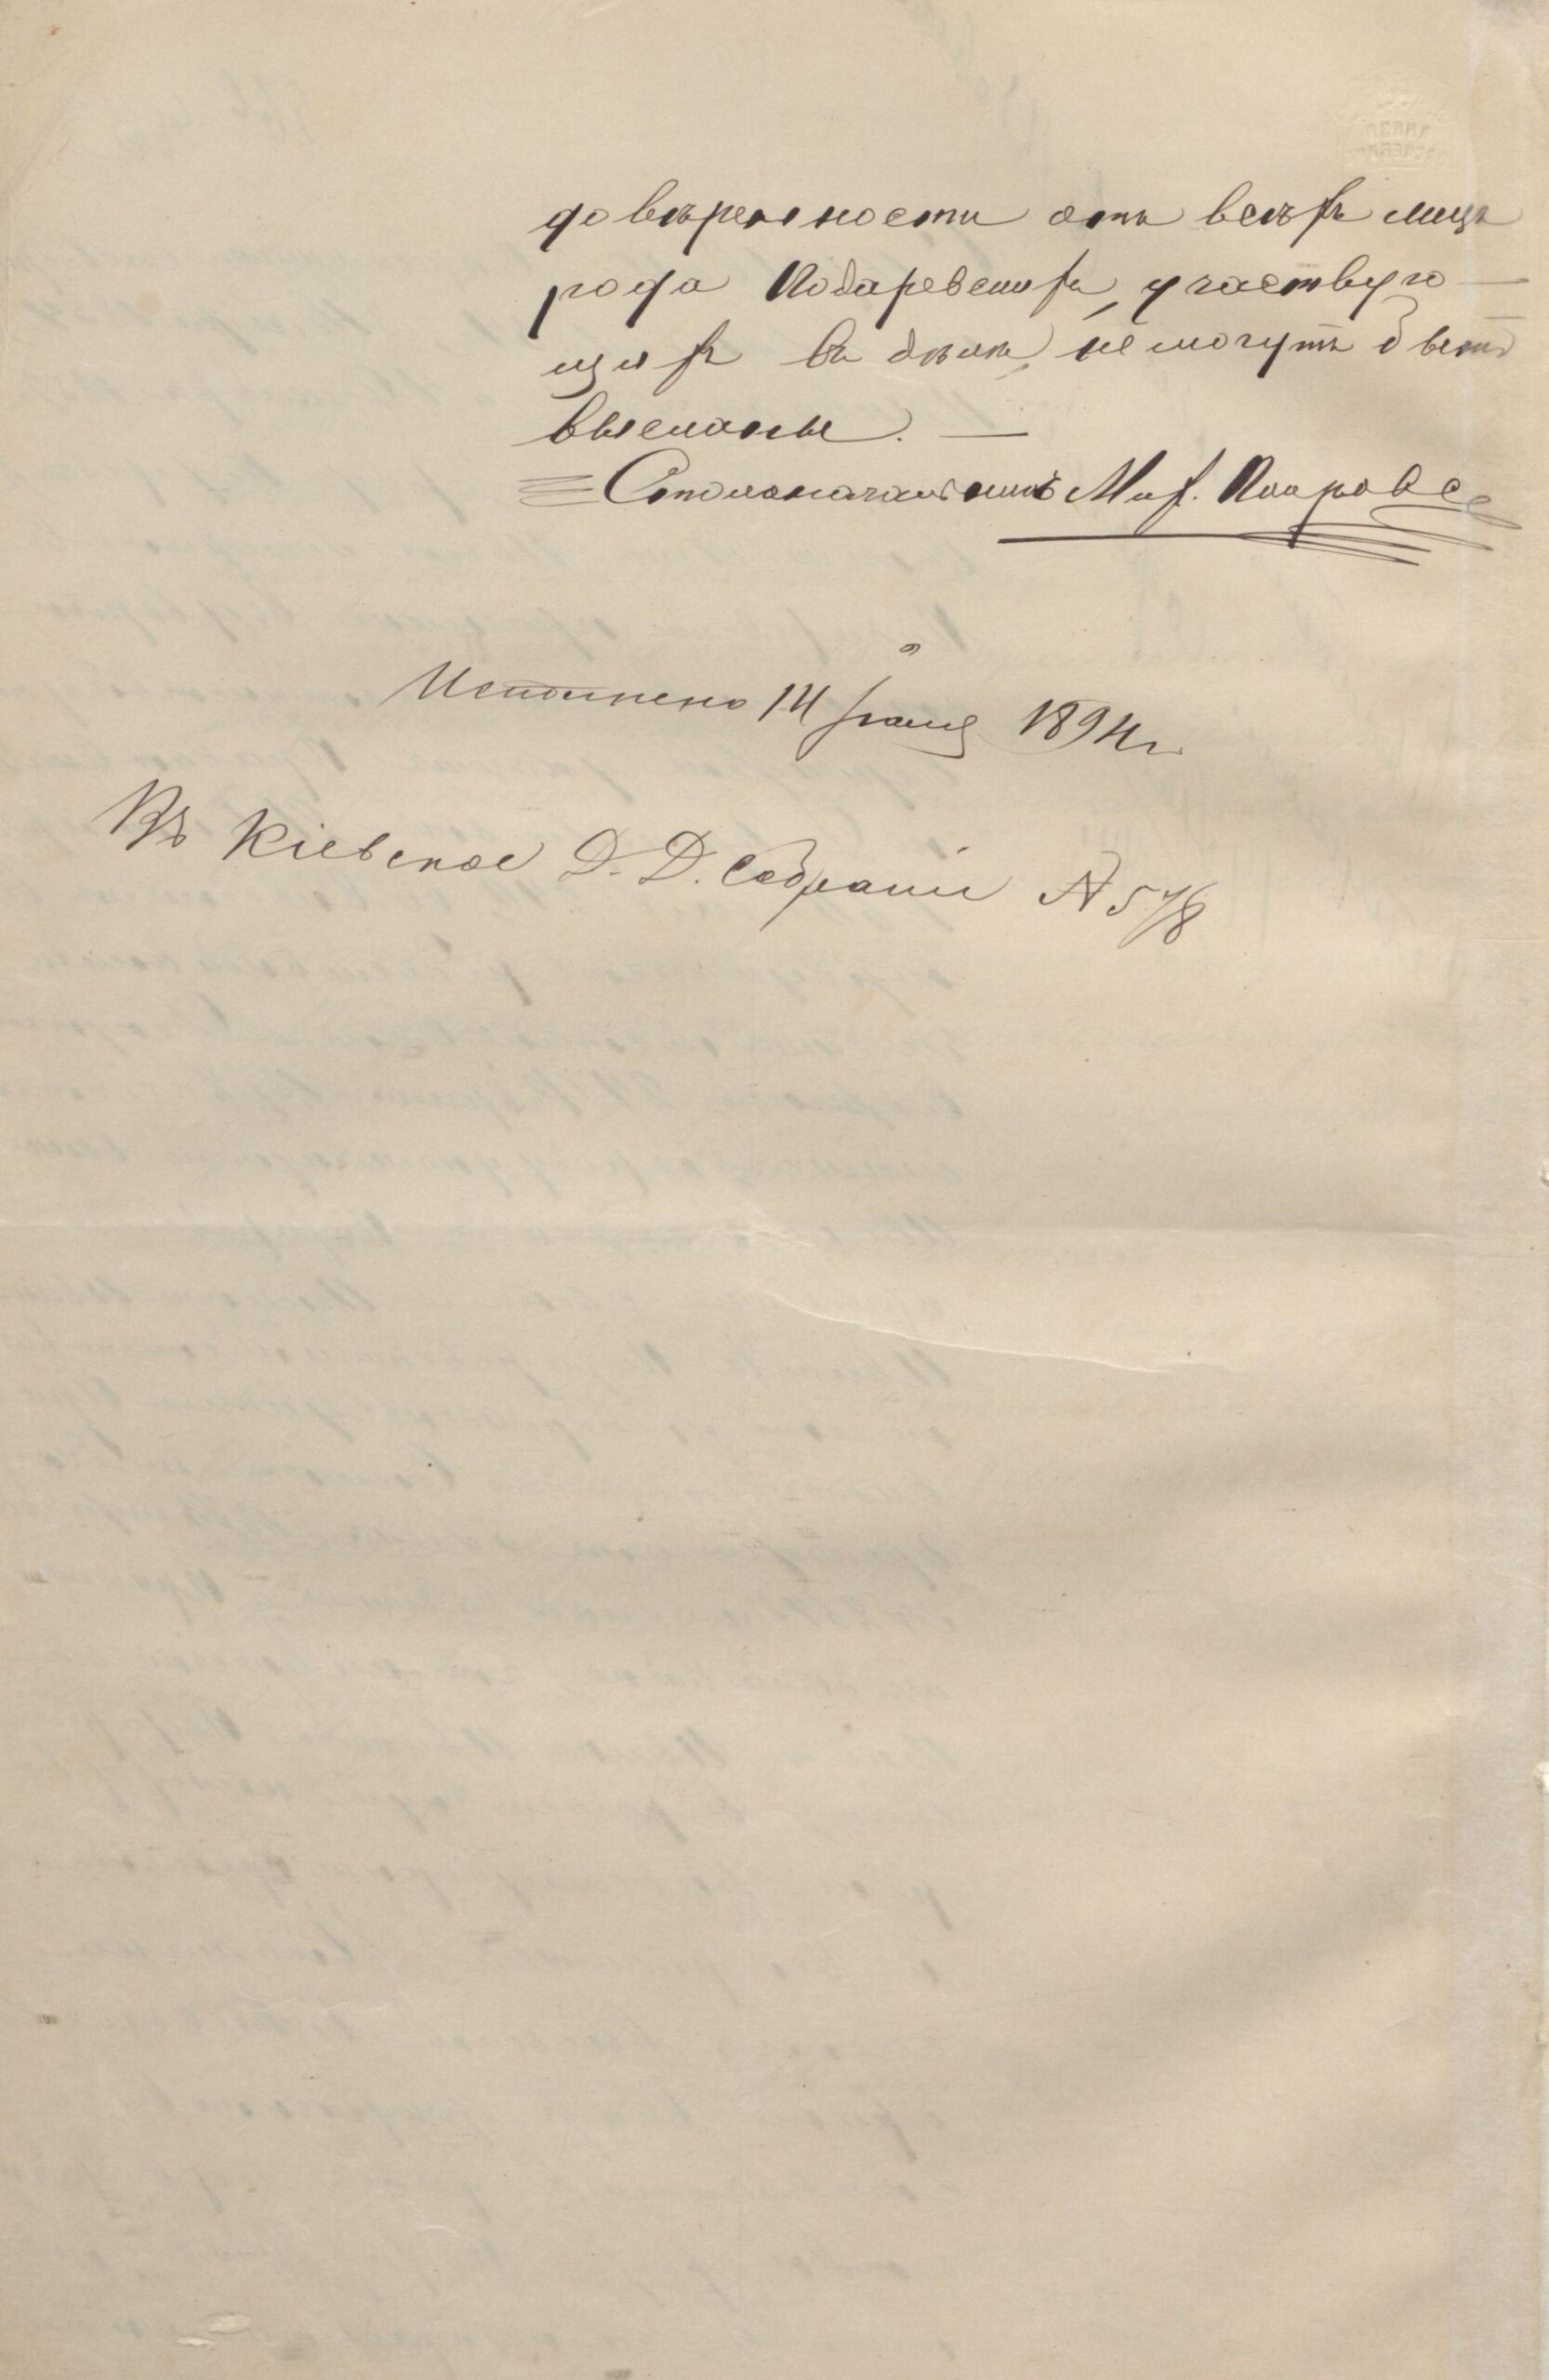 довѣренности отъ всѣхъ лицъ
рода Кобаревскихъ, участвую-
щихъ въ дѣлѣ, не могутъ быть
высланы. —
Столоначальникъ Мих.
Исполнено 14 1894 г.
Въ Кіевское Д. Д. Собраніе № 578